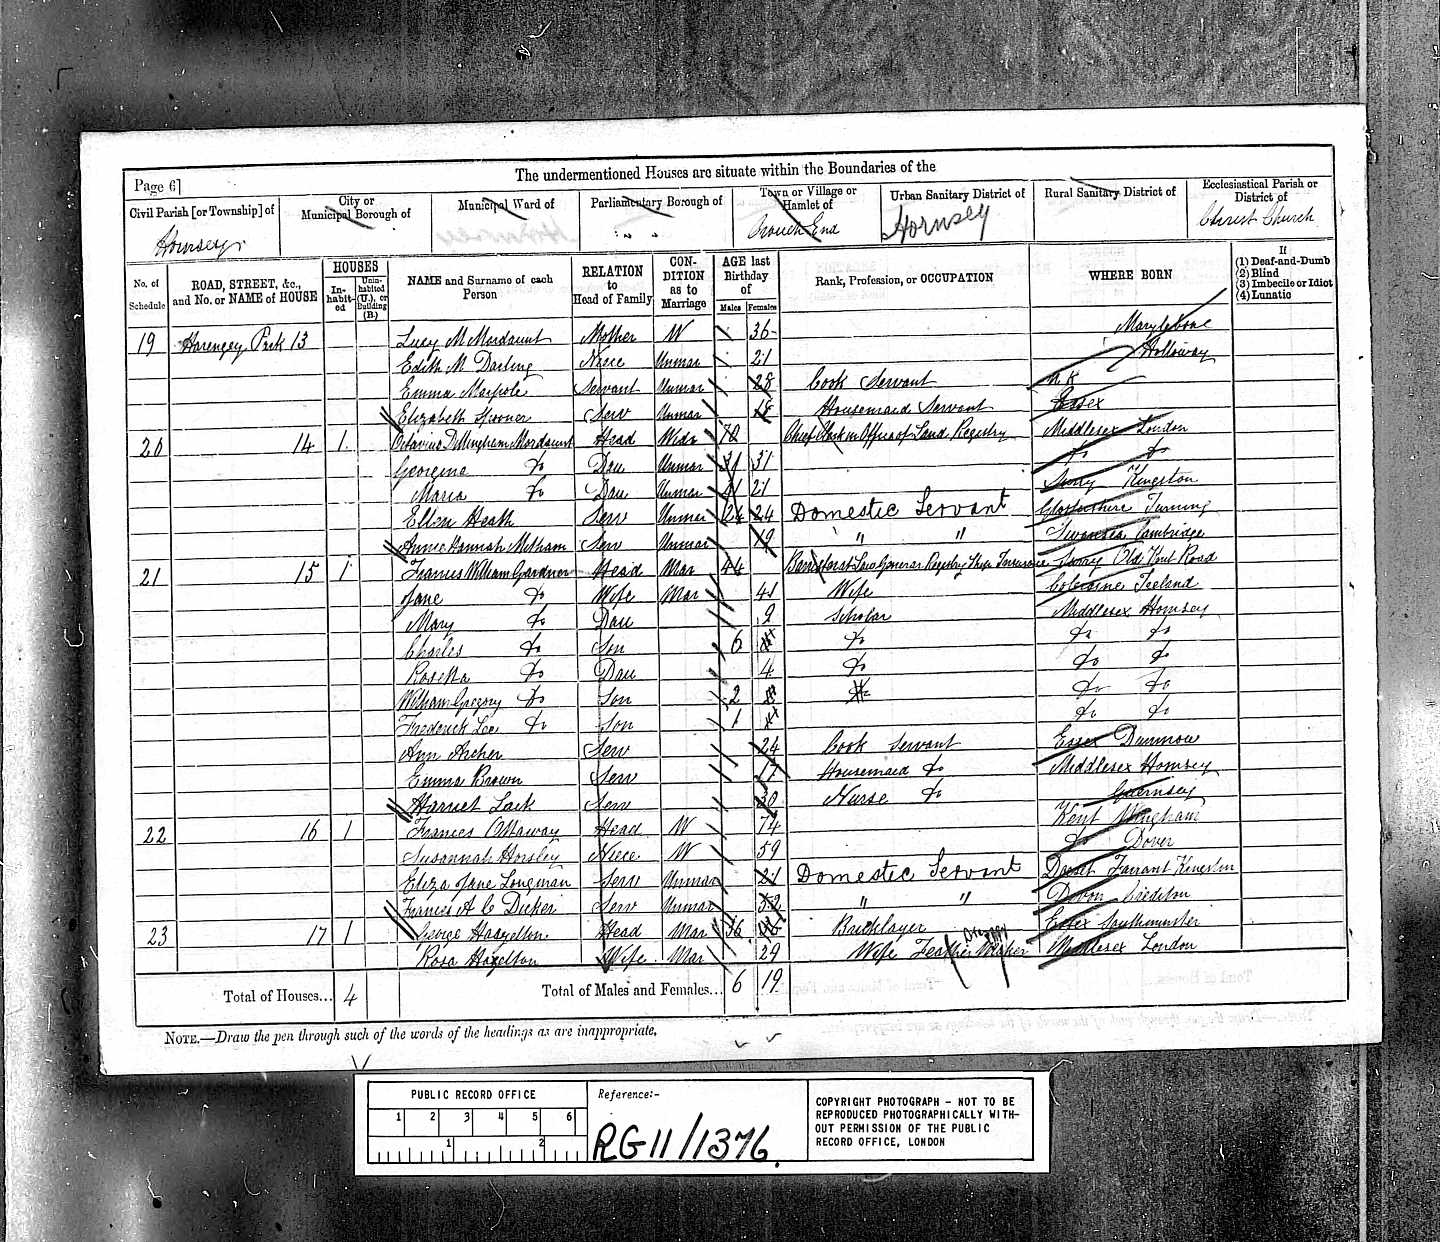 Page 6]
The undermentioned Houses are situate within the Boundaries of the
Civil Parish [or Township] of
Hornsey
City or Municipal Borough of
Municipal Ward of
Parliamentary Borough of
Town or Village or Hamlet of
Crouch End
Urban Sanitary District of
Hornsey
Rural Sanitary District of
Ecclesiastical Parish or District of
Christ Church
No. of Schedule
ROAD, STREET, &c., and No. or NAME of HOUSE
HOUSES
In-habit-ed
Unin-habited (U.), or Building (B.)
NAME and Surname of each Person
RELATION to Head of Family
CON-DITION as to Marriage
AGE last Birthday of
Males
Females
Rank, Profession, or OCCUPATION
WHERE BORN
If
(1) Deaf-and-Dumb
(2) Blind
(3) Imbecile or Idiot
(4) Lunatic
19 Harengey Park 13 Lucy M Mordaunt Mother W 36 Marylebone
Edith M Darling Niece Unmar 21 Holloway
Emma Maypole Servant Unmar 28 Cook Servant N K
Elizabeth Spooner Serv Unmar 18 Housemaid Servant Essex
20 14 1 Octavius Mordaunt Head Widr 70 Chief Clerk in Office of Land Registry Middlesex London
Georgina Do Dau Unmar 31 Do Do
Maria Do Dau Unmar 21 Surry Kingston
Ellen Heath Serv Unmar 24 Domestic Servant Glostershire
Annie Hannah Metham Serv Unmar 19 " " Cambridge
21 15 1 Francis William Gardner Head Mar 44 Surry Old Kent Road
Jane Do Wife Mar 41 Wife Coleraine Ireland
Mary Do Dau 9 Scholar Middlesex Hornsey
Charles Do Son 6 Do Do Do
Rosetta Do Dau 4 Do Do Do
William Gregory Do Son 2 Do Do
Frederick Lee Do Son 1 Do Do
Ann Archer Serv 24 Cook Servant Essex Dunmow
Emma Brown Serv 17 Housemaid Do Middlesex Hornsey
Harriet Lack Serv 30 Nurse Do Guernsey
22 16 1 Frances Ottaway Head W 74 Kent Wingham
Susannah Horsley Niece W 59 Do Dover
Eliza Jane Longman Serv Unmar 21 Domestic Servant Dorset Tarrant Kingston
Frances A C Dicker Serv Unmar 32 " " Devon Crediton
23 17 1 George Hazelton Head Mar 36 Bricklayer Essex Southminster
Rosa Hazelton Wife Mar 29 Wife Feather Maker Middlesex London
Total of Houses... 4
Total of Males and Females... 6 19
NOTE.—Draw the pen through such of the words of the headings as are inappropriate.
PUBLIC RECORD OFFICE
1 2 3 4 5 6
1 2
Reference:-
RG 11/1376
COPYRIGHT PHOTOGRAPH – NOT TO BE
REPRODUCED PHOTOGRAPHICALLY WITH-
OUT PERMISSION OF THE PUBLIC
RECORD OFFICE, LONDON